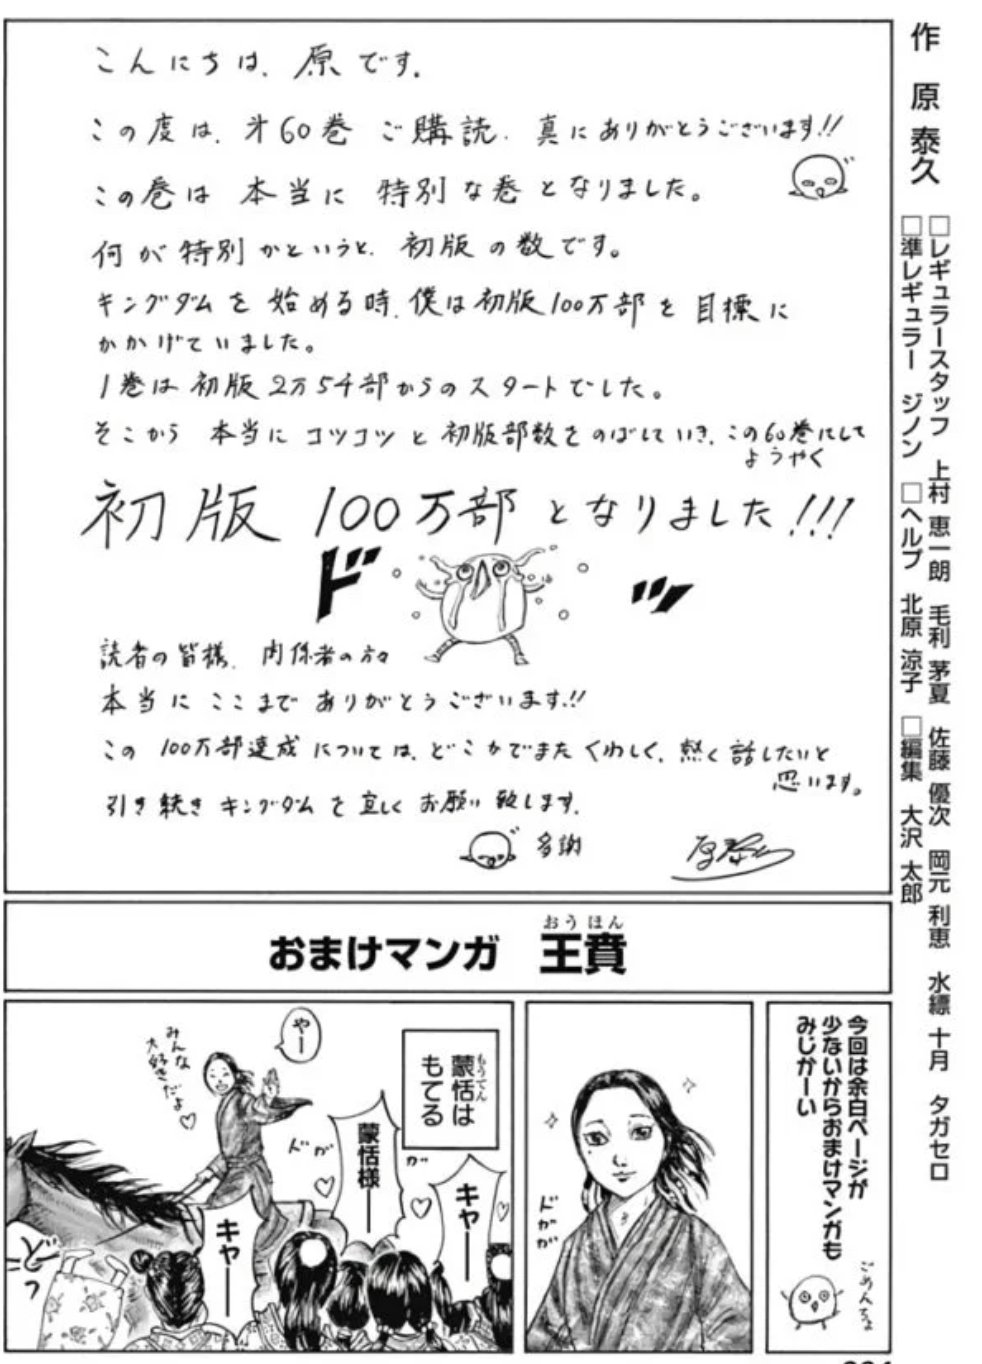 こんにちは、原です。
この度は、第60巻 ご購読、真にありがとうございます!!
この巻は 本当に 特別な巻となりました。
何が特別かというと、初版の数です。
キングダムを始める時、僕は初版100万部を目標に
かかげていました。
1巻は初版2万5千部からのスタートでした。
そこから 本当にコツコツと初版部数をのばしていき、この60巻にして
ようやく
初版 100万部となりました!!!
ドッ
読者の皆様、関係者の方々
本当に ここまで ありがとうございます!!
この 100万部達成については、どこかでまた くわしく、熱く話したいと
思います。
引き続き キングダムを宜しくお願い致します。
多謝
原泰久
作 原 泰久
□レギュラースタッフ 上村 恵一朗 毛利 茅夏 佐藤 優次 岡元 利恵 水縹 十月 タガセロ
□準レギュラー ジノン □ヘルプ 北原 涼子 □編集 大沢 太郎
おまけマンガ 王賁
おうほん
今回は余白ページが
少ないからおまけマンガも
みじかーい
ごめんちょ
ドガガ
蒙恬は
もうてん
もてる
やー
みんな
大好きだよ♡
蒙恬様ー
キャー
キャー
ドガ
ガ
どっ